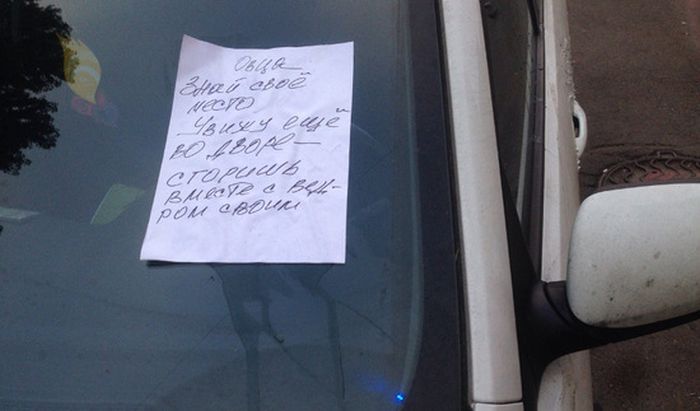 Овца
Знай своё
место
Увижу ещё
во дворе —
сгоришь
вместе с вед-
ром своим